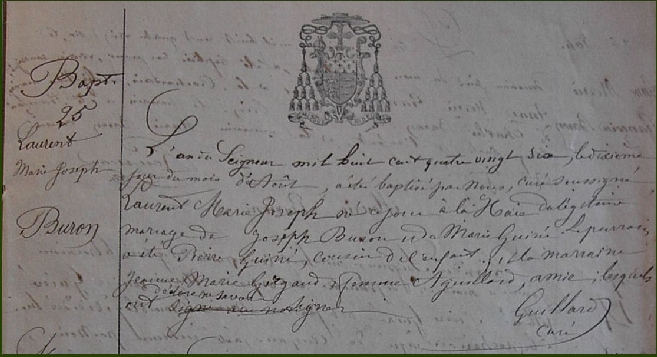 Bapt.
25
Laurent
Marie Joseph
Buron
L'an du Seigneur mil huit cent quatre vingt dix, le dixième
jour du mois d'Août, a été baptisé par Nous, curé soussigné
Laurent Marie Joseph né ce jour à la Haie du légitime
mariage de Joseph Buron et de Marie Guiné. Le parrain
a été Pierre Guiné, cousin de l'enfant, et la marraine
Jeanne Marie femme Aguillard, amie, lesquels
ont déclaré ne savoir signer
Guillard
Curé